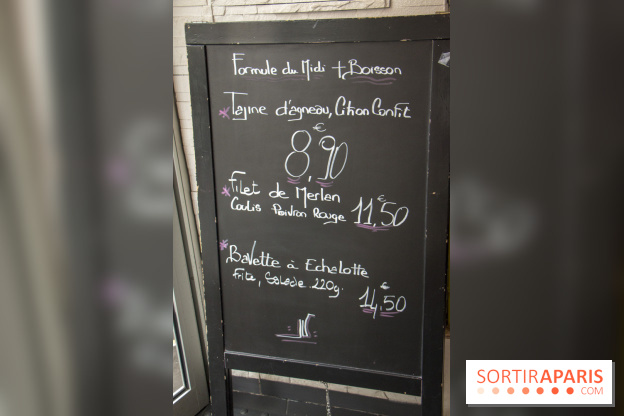 Formule du Midi + Boisson
* Tajine d'agneau, Citron Confit
8,90 €
* Filet de Merlan
Coulis Poivron Rouge 11,50 €
* Bavette à Echalotte
Frite, Salade. 220g.
14,50 €
SORTIRAPARIS
.COM